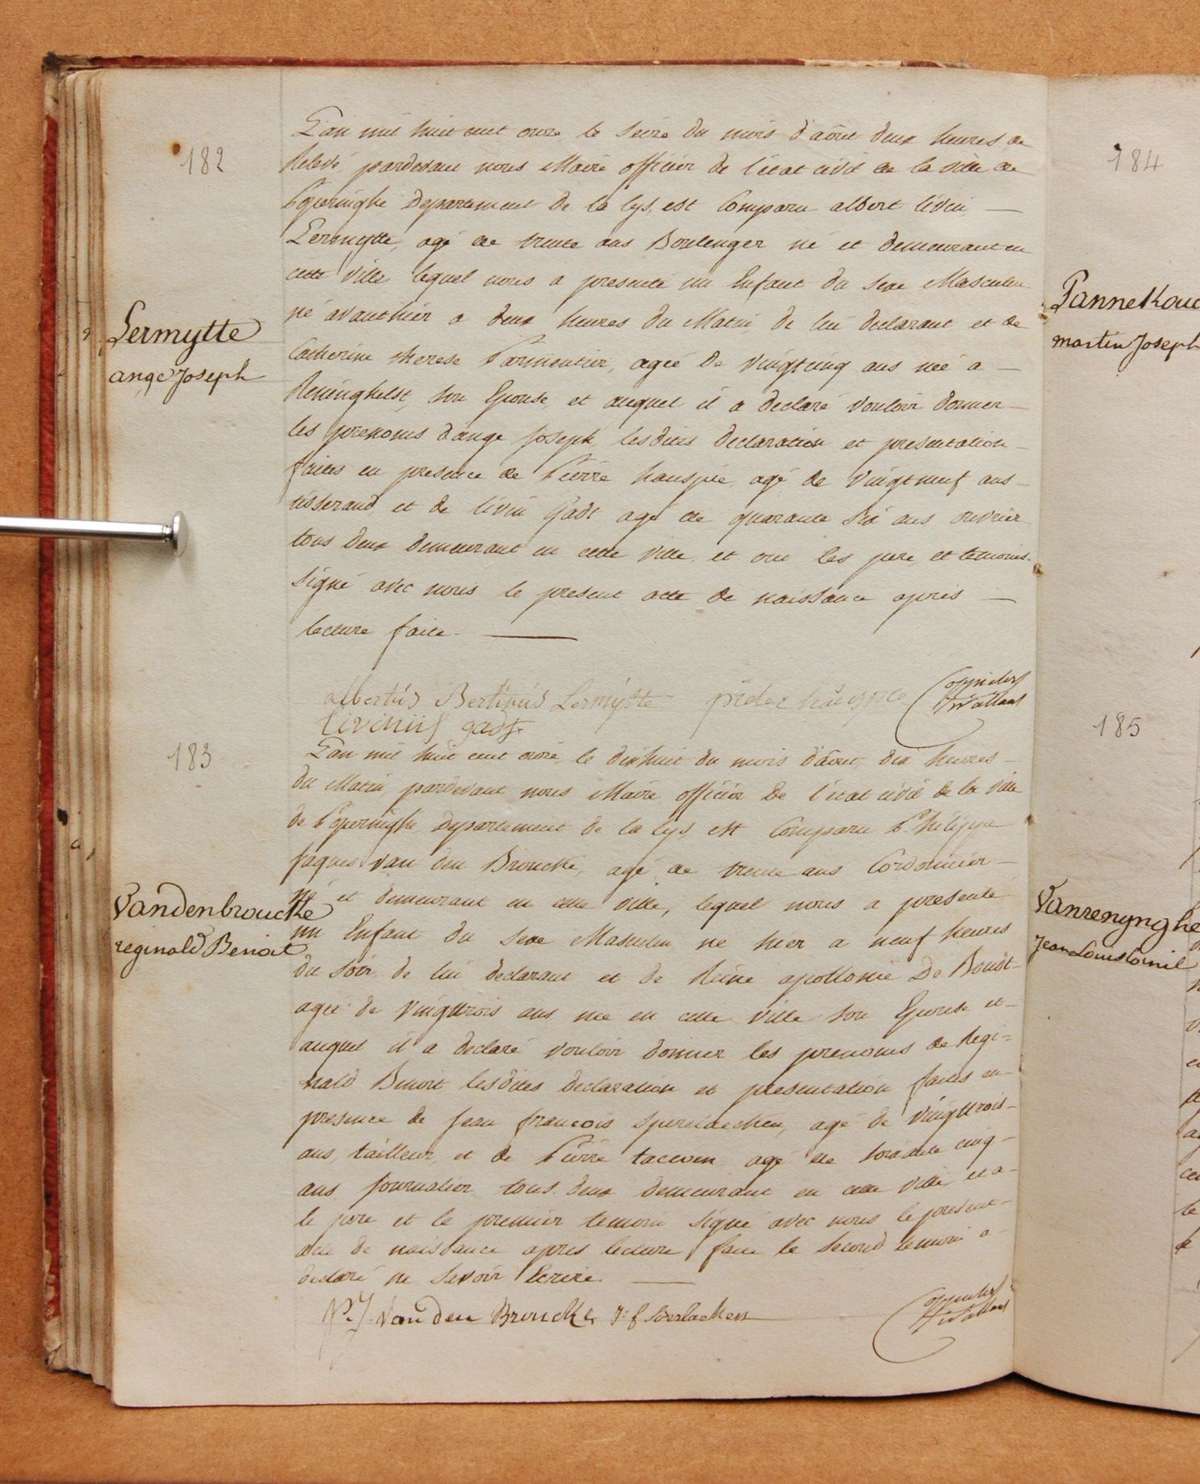 182
L'an mil huit cent onze le seize du mois d'août deux heures de
relevé, pardevant nous Maire officier de l'état civil de la ville de
Poperinghe Departement de la lys, est Comparu albert livin —
Lermytte, agé de trente ans Boulenger né et demeurant en
cette ville lequel nous a presenté un Enfant du sexe Masculin
né avanthier a deux heures du Matin de lui declarant et de
Catherine therese Parmentier, agée de vingtcinq ans née a —
Reninghelst, son Epouse et auquel il a declaré vouloir donner
les prenoms d'ange Joseph lesdites declaration et presentation
faites en presence de Pierre hauspie, agé de vingtneuf ans
tisserand et de livin Gadt agé de quarante six ans ouvrier
tous deux demeurant en cette ville, et ont les pere et temoins
signé avec nous le present acte de naissance après —
lecture faite. —
Lermytte
ange Joseph
albertus Bertinus Lermytte
livenus gadt
183
L'an mil huit cent onze, le dixhuit du mois d'août, dix heures
du Matin pardevant nous Maire officier de l'état civil de la ville
de Poperinghe Departement de la lys est Comparu Philippe
Jaques Van den Broucke, agé de trente ans Cordonnier —
né et demeurant en cette ville, lequel nous a presenté
un Enfant du sexe Masculin né hier a neuf heures
du soir de lui declarant et de Reine apollonie De
agée de vingttrois ans née en cette ville son Epouse et
auquel il a declaré vouloir donner les prenoms de Regi=
nald Benoit lesdites declaration et presentation faites en
presence de Jean françois agé de vingttrois
ans tailleur et de Pierre agé de soixante cinq
ans Journalier tous deux demeurant en cette ville et a
le pere et le premier temoin signé avec nous le present
acte de naissance apres lecture faite le second temoin a
declaré ne savoir Ecrire. —
Vandenbroucke
reginald Benoit
P. J. Van den Broucke
184
Pannekouc
martin Joseph
185
Vanrenynghe
Jean Louis